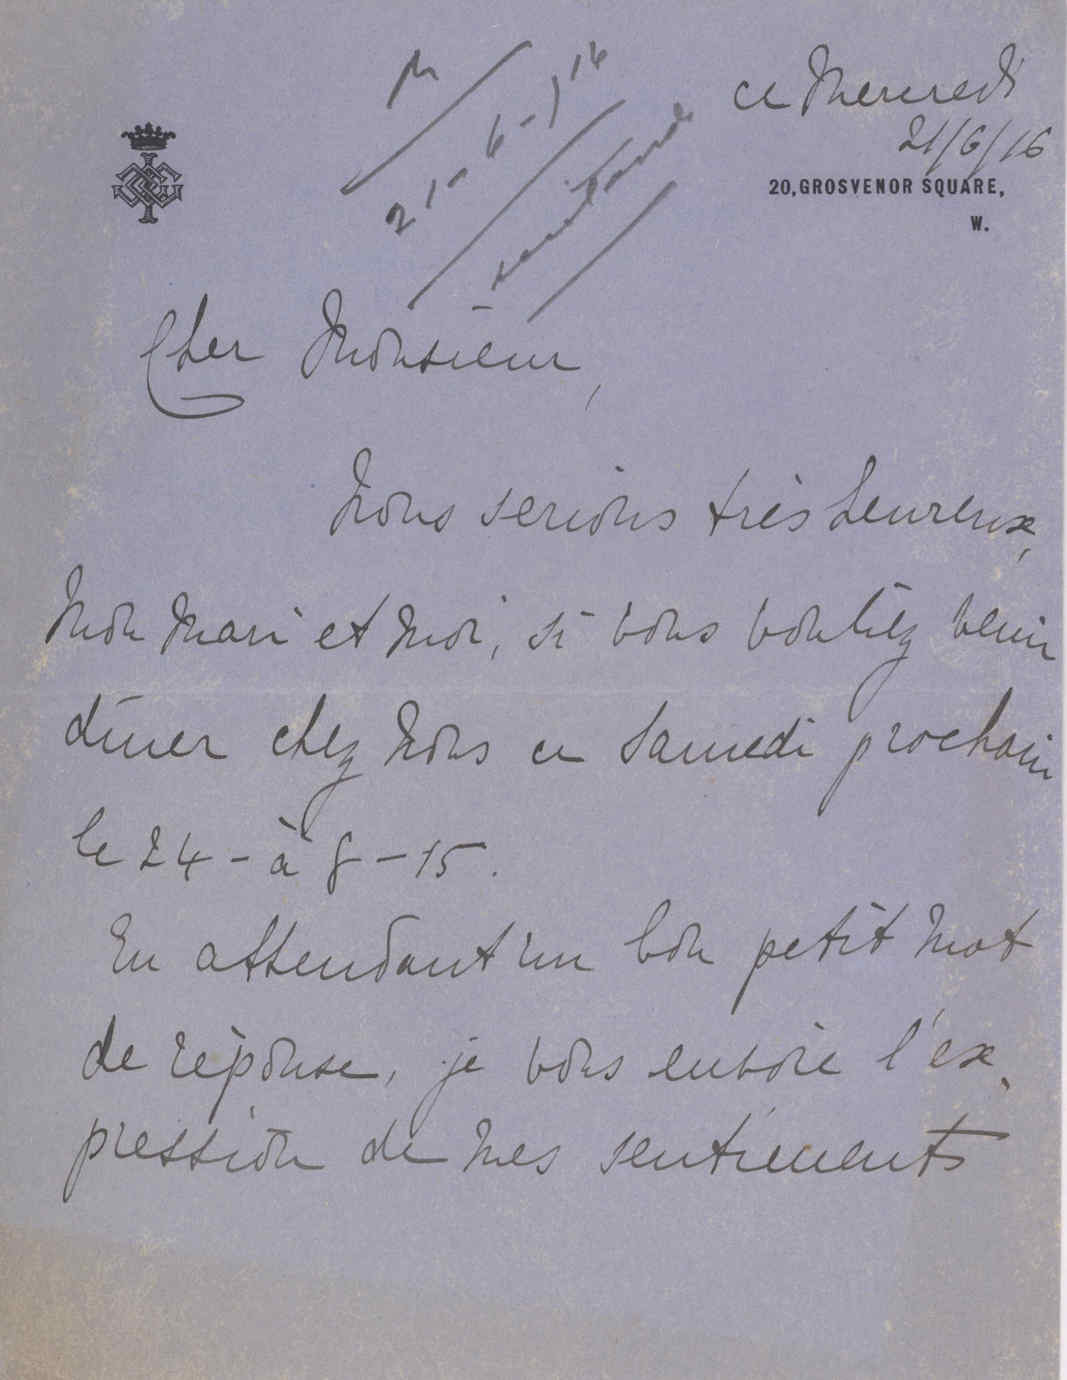 M
21-6-16
ce Mercredi
21/6/16
20, GROSVENOR SQUARE,
W.
Cher Monsieur,
Nous serions très heureux,
mon mari et moi, si vous vouliez venir
dîner chez nous ce Samedi prochain
le 24 - à 8 - 15.
En attendant un bon petit mot
de réponse, je vous envoie l'ex-
pression de mes sentiments